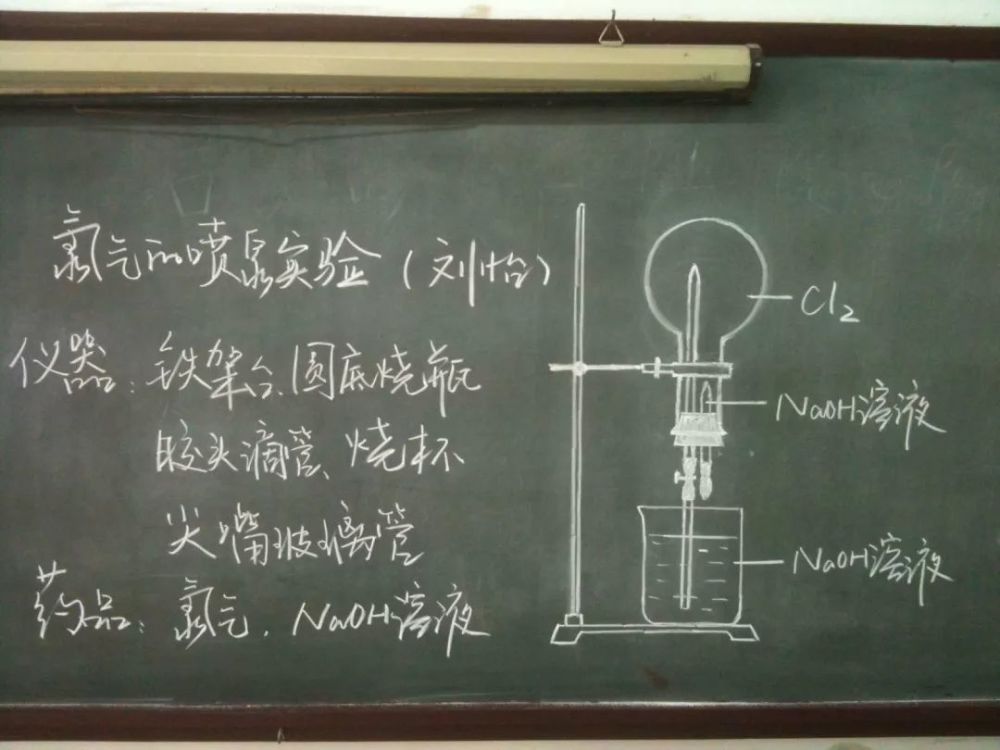 氯气的喷泉实验(刘怡)
仪器:铁架台、圆底烧瓶
胶头滴管、烧杯
尖嘴玻璃管
药品:氯气、NaOH溶液
Cl₂
NaOH溶液
NaOH溶液